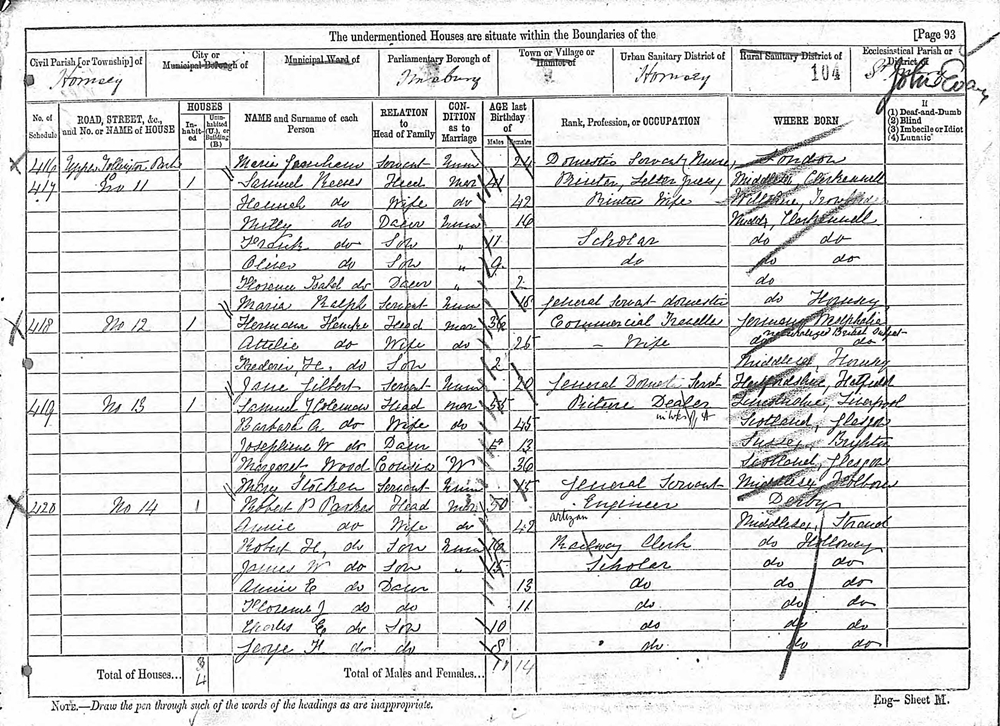 The undermentioned Houses are situate within the Boundaries of the [Page 93
Civil Parish [or Township] of City or Municipal Borough of Municipal Ward of Parliamentary Borough of Town or Village or Hamlet of Urban Sanitary District of Rural Sanitary District of Ecclesiastical Parish or District of
Hornsey Finsbury Hornsey 104 John Evan
No. of Schedule ROAD, STREET, &c., and No. or NAME of HOUSE HOUSES Inhabited Uninhabited (U.), or Building (B.) NAME and Surname of each Person RELATION to Head of Family CONDITION as to Marriage AGE last Birthday of Males Females Rank, Profession, or OCCUPATION WHERE BORN If (1) Deaf-and-Dumb (2) Blind (3) Imbecile or Idiot (4) Lunatic
416 Upper Tollington Park Maria Servant Unm 24 Domestic Servant, Nurse, London
417 No 11 1 Samuel Reeses Head mar 41 Printer, Letter press, Middlesex, Clerkenwell
Hannah do Wife do 42 Printers Wife Wiltshire,
Milly do Daur Unm 16 Middx, Clerkenwell
Frank do Son " 11 Scholar do do
Oliver do Son " 9 do do do
Florence Isabel do Daur " 2 do
Maria Ralph Servant Unm 15 General Servant domestic do Hornsey
418 No 12 1 Hermann Hempe Head mar 36 Commercial Traveller Germany Westphalia
naturalized British Subject
Attilie do Wife do 25 - Wife do do
Frederic H. do Son 2 Middlesex, Hornsey
Jane Gilbert Servant Unm 20 General Domestic Servt Hertfordshire, Hatfield
419 No 13 1 Samuel J Coleman Head mar 55 Picture Dealer Liverpool
Barbara A. do Wife do 45 Scotland, Glasgow
Josephine W do Daur 13 Sussex, Brighton
Margaret Wood Cousin W 36 Scotland, Glasgow
Mary Stocken Servant Unm 15 General Servant Middlesex Holborn
420 No 14 1 Robert P Parkes Head mar 50 Engineer Derby
artizan
Annie do Wife do 42 Middlesex, Strand
Robert H, do Son Unm 16 Railway Clerk do Holloway
James W do Son " 15 Scholar do do
Annie E do Daur 13 do do do
Florence J do do 11 do do do
Charles E do Son 10 do do do
George H do do 8 do do do
Total of Houses... 3 4 Total of Males and Females... 11 14
NOTE.—Draw the pen through such of the words of the headings as are inappropriate. Eng— Sheet M.